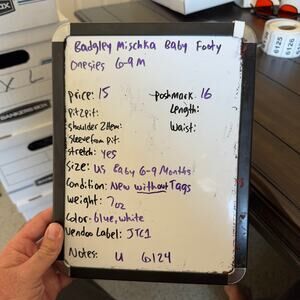 Badgley Mischka Baby Footy
Onesies 6-9M
price: 15 poshmark: 16
pit2pit: Length:
shoulder2Hem: Waist:
sleeve from pit:
stretch: yes
size: US Baby 6-9 Months
Condition: New without Tags
weight: 7oz
Color: blue, white
Vendoo Label: JTC1
Notes: U 6124
6125
6126